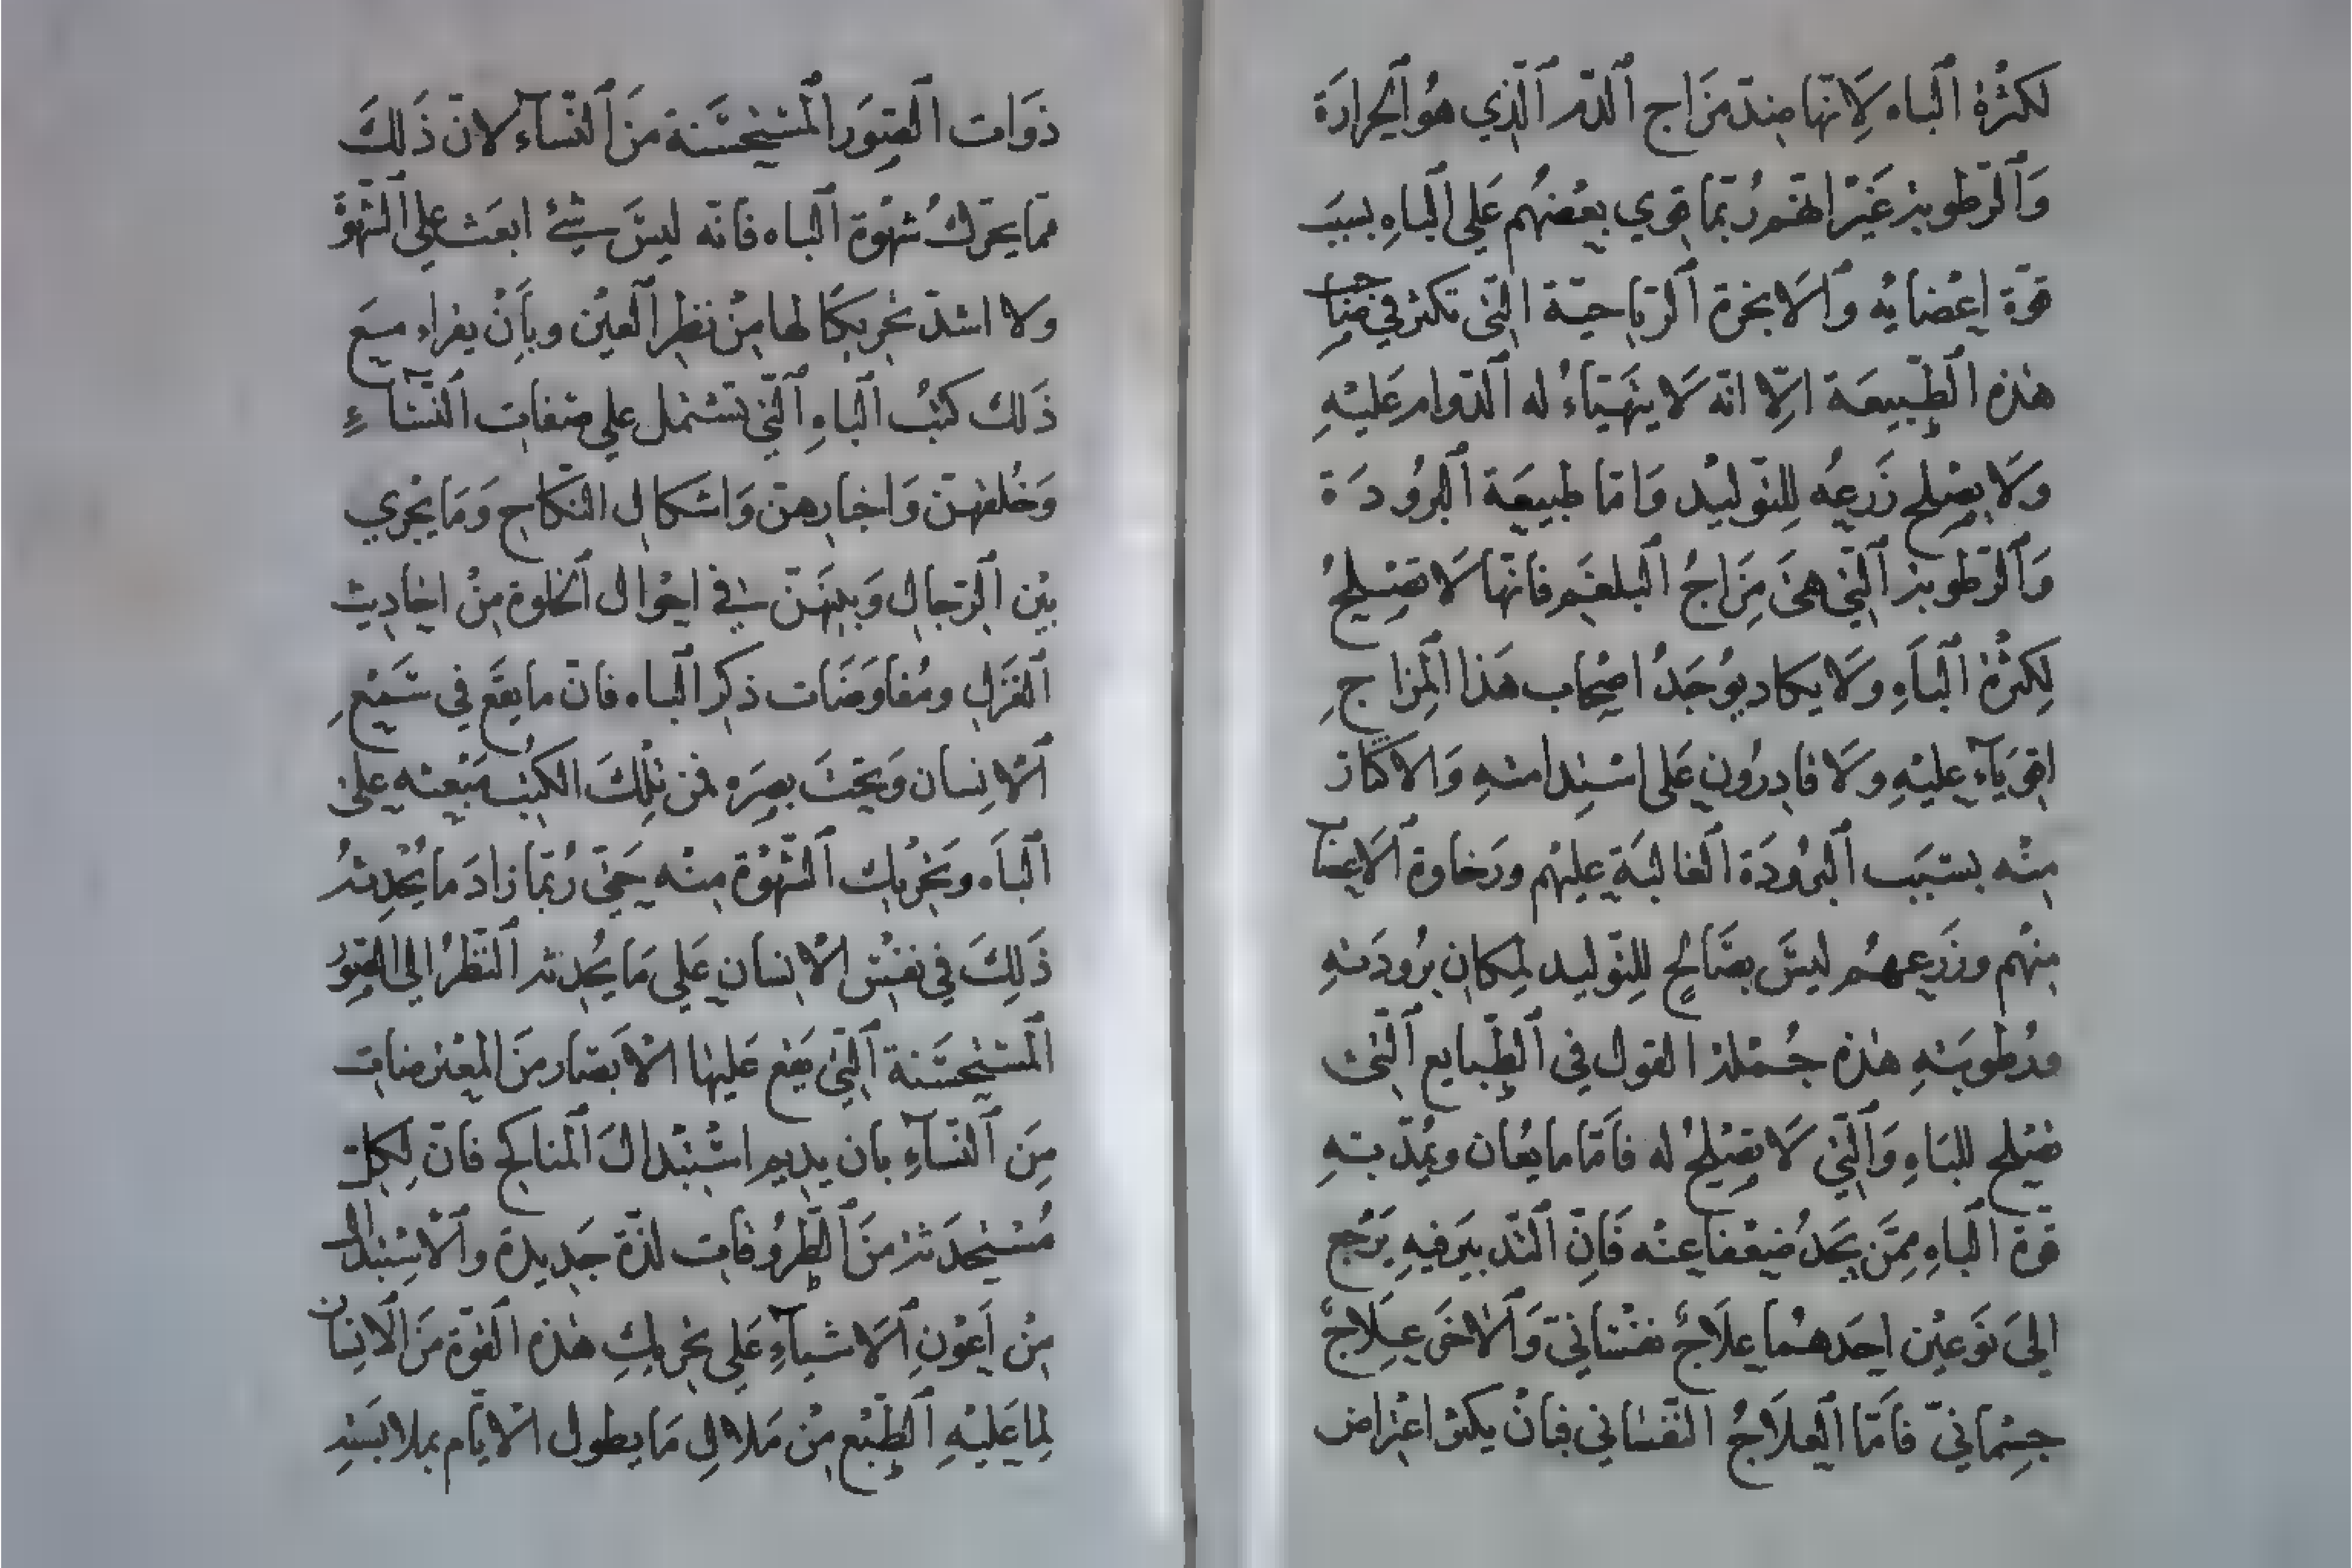 لكثرة الباه لانها ضد مزاج الدم الذي هو الحرارة
والرطوبة غير انهم ربما قوي بعضهم على الباه بسبب
قوة اعضايه والابخرة الرياحية التي تكثر في صاحب
هذه الطبيعة الا انه لا يتهياء له الدوام عليه
ولا يصلح زرعه للتوليد واما طبيعة البرودة
والرطوبة التي هي مزاج البلغم فانها لا تصلح
لكثرة الباه ولا يكاد يوجد اصحاب هذا المزاج
اقوياء عليه ولا قادرون على استدامته والاكثار
منه بسبب البرودة الغالبة عليهم ورخاوة الاعضا
منهم وزرعهم ليس بصالح للتوليد لمكان برودته
ورطوبته هذه جملة القول في الطبايع التي
تصلح للباه والتي لا تصلح له فاما ما يعان ويمد به
قوة الباه ممن يجد ضعفا عنه فان التدبير فيه يرجع
الى نوعين احدهما علاج نفساني والاخر علاج
جسماني فاما العلاج النفساني فبان يكثر اعتراض
ذوات الصور المستحسنة من النساء لان ذلك
مما يحرك شهوة الباه فانه ليس شئ ابعث على الشهوة
ولا اشد تحريكا لها من نظر العين وبان يقراء مع
ذلك كتب الباه التي تشتمل على صفات النساء
وخلقهن واخبارهن واشكال النكاح وما يجري
بين الرجال وبينهن في احوال الخلوة من احاديث
الغزل ومفاوضات ذكر الباه فان ما يقع في سمع
الانسان وتحت بصره من تلك الكتب يبعثه على
الباه وتحريك الشهوة منه حتى ربما زاد ما يحدثه
ذلك في نفس الانسان على ما يحدثه النظر الى الصور
المستحسنة التي يقع عليها الابصار من المعترضات
من النساء بان يديم استبدال المناكح فان لكل
مستحدثة من الطروقات لذة جديدة والاستبدال
من اعون الاشياء على تحريك هذه القوة من الانسان
لما عليه الطبع من ملال ما يطول الايام بملابسته